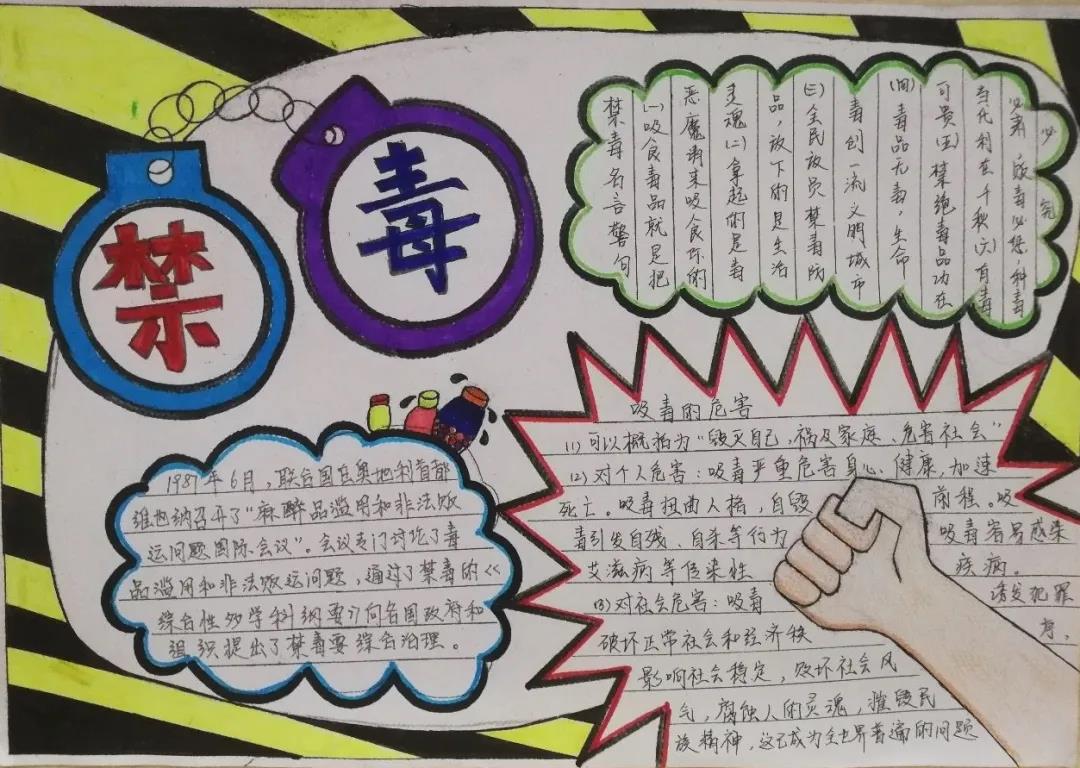 禁
毒
必究
禁毒名言警句
(一)吸食毒品就是把
恶魔请来吸食你的
灵魂(二)拿起的是毒
品，放下的是生活
(三)全民放员禁毒防
毒创一流文明城市
(四)毒品无毒，生命
可贵(五)禁绝毒品功在
当代利在千秋(六)有毒
必肃，贩毒必惩，种毒
必
1987年6月，联合国在奥地利首都
维也纳召开了“麻醉品滥用和非法贩
运问题国际会议”。会议专门讨论了毒
品滥用和非法贩运问题，通过了禁毒的《
综合性多学科纲要》向各国政府和
组织提出了禁毒要综合治理。
吸毒的危害
(1)可以概括为“毁灭自己，祸及家庭、危害社会”
(2)对个人危害：吸毒严重危害身心、健康，加速
死亡。吸毒扭曲人格，自毁前程。吸
毒引发自残、自杀等行为 吸毒容易感染
艾滋病等传染性疾病。
(3)对社会危害：吸毒 诱发犯罪
破坏正常社会和经济秩序，
影响社会稳定，败坏社会风
气，腐蚀人的灵魂，摧毁民
族精神，这已成为全世界普遍的问题